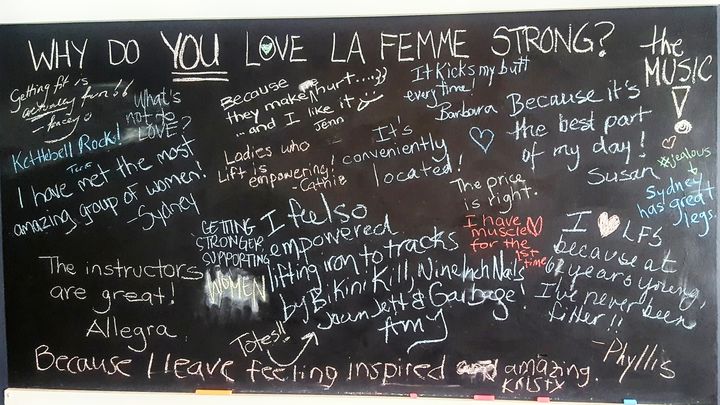 WHY DO YOU LOVE LA FEMME STRONG?
the
MUSIC
!
Getting fit is
actually fun!!
- tracey
What's
not to
LOVE?
Because
they make me hurt....;)
...and I like it
Jenn
It Kicks my butt
everytime!
Barbara
Because it's
the best part
of my day!
Susan
Kettlebell Rocks!
I have met the most
amazing group of women!
-Sydney
Ladies who
Lift is
empowering!
-Cathie
It's
conveniently
located!
The price
is right.
#jealous
Sydney
has great
legs
GETTING
STRONGER,
SUPPORTING
WOMEN
I feel so
empowered
lifting iron to tracks
by Bikini Kill, Nine Inch Nails
Joan Jett & Garbage.
Amy
I have
muscle
for the
1st
time
I ♥ LFS
because at
62 years young,
I've never been
fitter!!
-Phyllis
The instructors
are great!
Allegra
Totes!!
Because I leave feeling inspired and amazing.
Kristy